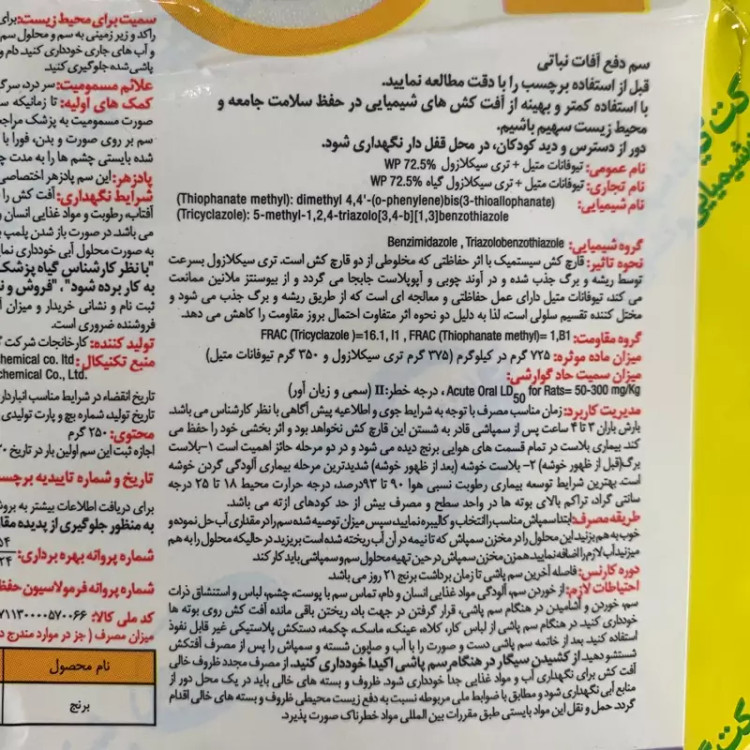 سم دفع آفات نباتی
قبل از استفاده برچسب را با دقت مطالعه نمایید.
با استفاده کمتر و بهینه از آفت کش های شیمیایی در حفظ سلامت جامعه و
محیط زیست سهیم باشیم.
دور از دسترس و دید کودکان، در محل قفل دار نگهداری شود.
نام عمومی: تیوفانات متیل + تری سیکلازول WP 72.5%
نام تجاری: تیوفانات متیل + تری سیکلازول گیاه WP 72.5%
نام شیمیایی: (Thiophanate methyl): dimethyl 4,4'-(o-phenylene)bis(3-thioallophanate)
(Tricyclazole): 5-methyl-1,2,4-triazolo[3,4-b][1,3]benzothiazole
گروه شیمیایی: Benzimidazole , Triazolobenzothiazole
نحوه تاثیر: قارچ کش سیستمیک با اثر حفاظتی که مخلوطی از دو قارچ کش است. تری سیکلازول بسرعت
توسط ریشه و برگ جذب شده و در آوند چوبی و آپوپلاست جابجا می گردد و از بیوسنتز ملانین ممانعت
می کند، تیوفانات متیل دارای عمل حفاظتی و معالجه ای است که از طریق ریشه و برگ جذب می شود و
مختل کننده تقسیم سلولی است، لذا به دلیل دو نحوه اثر متفاوت احتمال بروز مقاومت را کاهش می دهد.
گروه مقاومت: FRAC (Tricyclazole )=16.1, I1 , FRAC (Thiophanate methyl)= 1,B1
میزان ماده موثره: ۷۲۵ گرم در کیلوگرم (۳۷۵ گرم تری سیکلازول و ۳۵۰ گرم تیوفانات متیل)
میزان سمیت حاد گوارشی:
Acute Oral LD50 for Rats= 50-300 mg/Kg ، درجه خطر:II (سمی و زیان آور)
مدیریت کاربرد: زمان مناسب مصرف با توجه به شرایط جوی و اطلاعیه پیش آگاهی با نظر کارشناس می باشد.
بارش باران ۳ تا ۴ ساعت پس از سمپاشی قادر به شستن این قارچ کش نخواهد بود و اثر بخشی خود را حفظ می
کند. بیماری بلاست در تمام قسمت های هوایی برنج دیده می شود و در دو مرحله حائز اهمیت است ۱-بلاست
برگ(قبل از ظهور خوشه) ۲- بلاست خوشه (بعد از ظهور خوشه) شدیدترین مرحله بیماری آلودگی گردن خوشه
است. بهترین شرایط توسعه بیماری رطوبت نسبی هوا ۹۰ تا ۹۳درصد، درجه حرارت محیط ۱۸ تا ۲۵ درجه
سانتی گراد، تراکم بالای بوته ها در واحد سطح و مصرف بیش از حد کودهای ازته می باشد.
طریقه مصرف: ابتدا سمپاش مناسب را انتخاب و کالیبره نمایید سپس میزان توصیه شده سم را در مقداری آب حل نموده و
خوب به هم بزنید این محلول را در مخزن سمپاش که تا نیمه در آن آب ریخته شده است بریزید در حالیکه محلول را به هم
میزنید آب لازم را اضافه نمایید همزن مخزن سمپاش در حین تهیه محلول سم و سمپاشی باید کار کند.
دوره کارنس: فاصله آخرین سم پاشی تا زمان برداشت برنج ۲۱ روز می باشد.
احتیاطات لازم: از خوردن سم، آلودگی مواد غذایی انسان و دام، تماس سم با پوست، چشم، لباس و استنشاق ذرات
سم، خوردن و آشامیدن در هنگام سم پاشی، قرار گرفتن در جهت باد، ریختن باقی مانده آفت کش روی بوته ها
خودداری کنید. در هنگام سم پاشی از لباس کار، کلاه، عینک، ماسک، چکمه، دستکش پلاستیکی غیر قابل نفوذ
استفاده کنید. بعد از خاتمه سم پاشی دست و صورت را با آب و صابون شسته و سمپاش را پس از مصرف آفتکش
شستشو دهید. از کشیدن سیگار در هنگام سم پاشی اکیدا خودداری کنید. از مصرف مجدد ظروف خالی
آفت کش برای نگهداری آب و مواد غذایی جدا خودداری شود. ظروف و بسته های خالی باید در یک محل دور از
منابع آبی نگهداری شود و مطابق با ضوابط ملی مربوطه نسبت به دفع زیست محیطی ظروف و بسته های خالی اقدام
گردد. حمل و نقل این مواد بایستی طبق مقررات بین المللی مواد خطرناک صورت پذیرد.
سمیت برای محیط زیست: برای
راکد و زیر زمینی به سم و محلول سم
و آب های جاری خودداری کنید. دام و
پاشی شده جلوگیری کنید.
علائم مسمومیت: سر درد، سرگ
کمک های اولیه: تا زمانیکه س
صورت مسمومیت به پزشک مراجع
سم بر روی صورت و بدن، فورا با
شده بایستی چشم ها را به مدت چ
پادزهر: این سم پادزهر اختصاصی
شرایط نگهداری: آفت کش را
آفتاب، رطوبت و مواد غذایی انسان و
می باشد. در صورت باز شدن پلمپ ب
به صورت محلول آبی خودداری نمای
"با نظر کارشناس گیاه پزشک
به کار برده شود"، "فروش و ن
ثبت نام و نشانی خریدار و میزان آ
فروشنده ضروری است.
تولید کننده: کارخانجات شرکت گ
منبع تکنیکال: hemical co. ltd
chemical Co., Ltd.
تاریخ انقضاء در شرایط مناسب انباردار
تاریخ تولید، شماره بچ و پارت تولیدی
محتوی: ۲۵۰ گرم
اجازه ثبت این سم اولین بار در تاریخ ۲۰
تاریخ و شماره تاییدیه برچسب
برای دریافت اطلاعات بیشتر به بروش
به منظور جلوگیری از پدیده مقا
شماره پروانه بهره برداری: ۵۴
۲۴
شماره پروانه فرمولاسیون حفظ
کد ملی کالا: ۷۱۱۳۰۰۰۰۵۷۰۰۶۶
میزان مصرف ( جز در موارد مندرج د
نام محصول
برنج